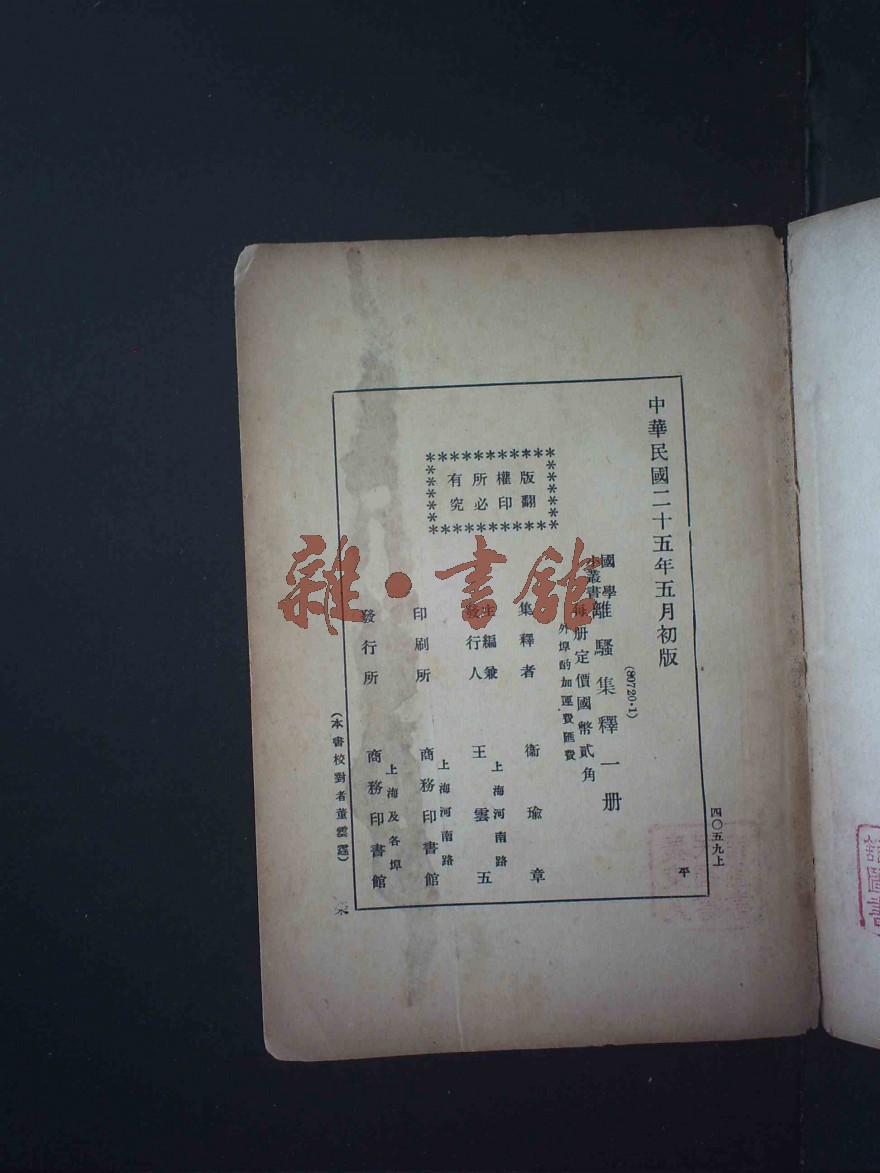 中華民國二十五年五月初版
四〇五九上
(80720·1)
國學
小叢書
離騷集釋一册
平
每册定價國幣貳角
外埠酌加運費匯費
版權所有
翻印必究
集釋者 衞瑜章
主編兼
發行人 王雲五
上海河南路
印刷所 商務印書館
上海河南路
發行所 商務印書館
上海及各埠
(本書校對者董雲霆)
雜·書館